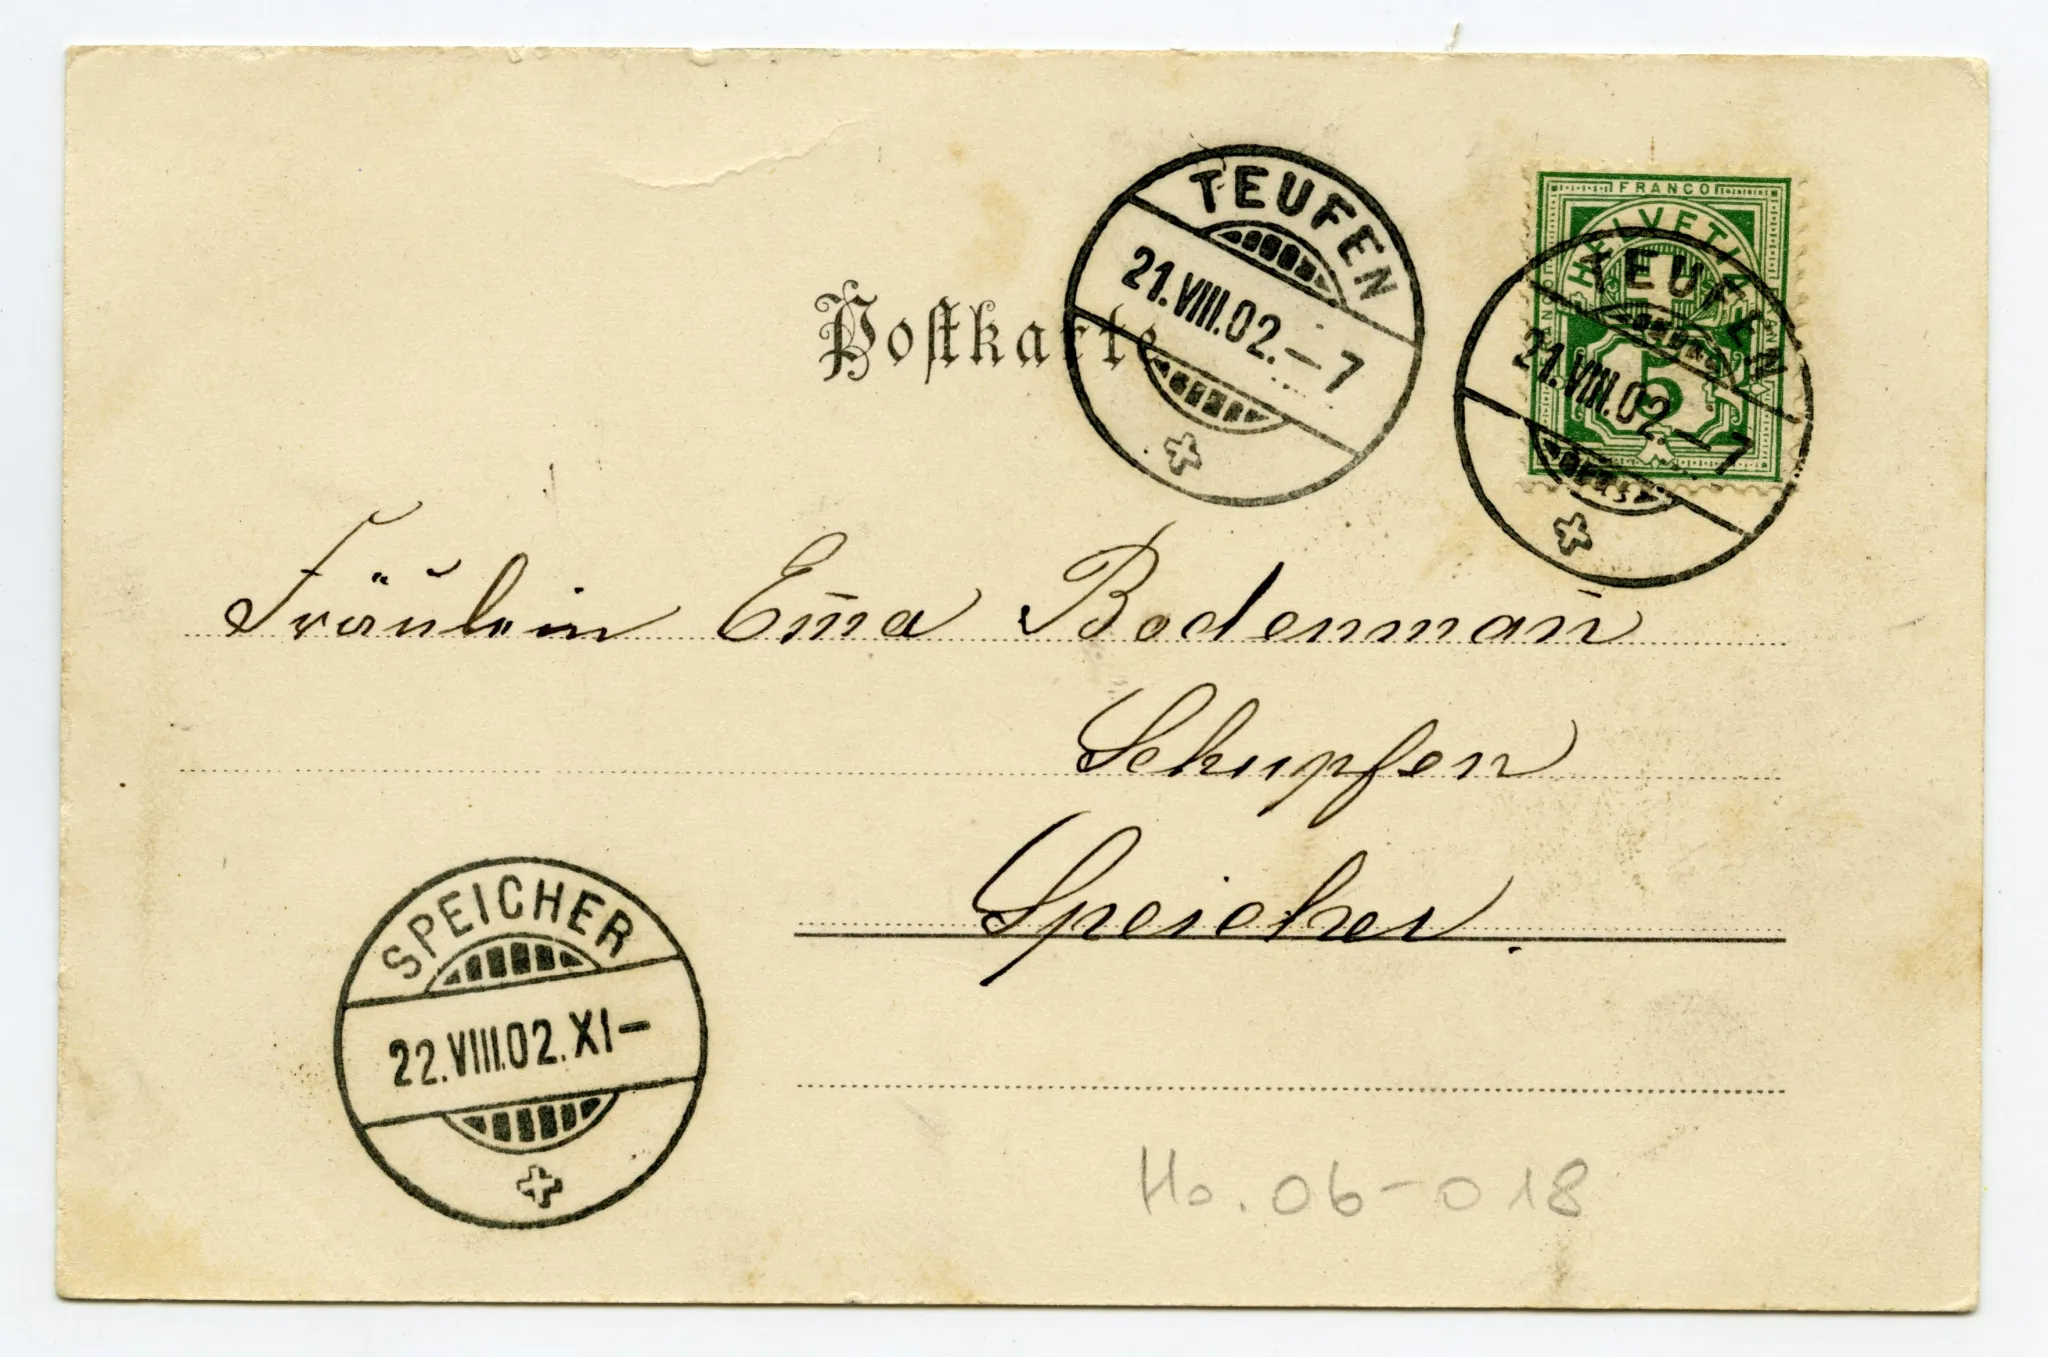 FRANCO
HELVETIA
FRANCO
FRANCO
5
TEUFEN
21.VIII.02.–7
TEUFEN
21.VIII.02.–7
Postkarte
Fräulein Em̅a Bodenman̅
Schupfen
Speicher.
SPEICHER
22.VIII.02.XI–
Ho. 06-018